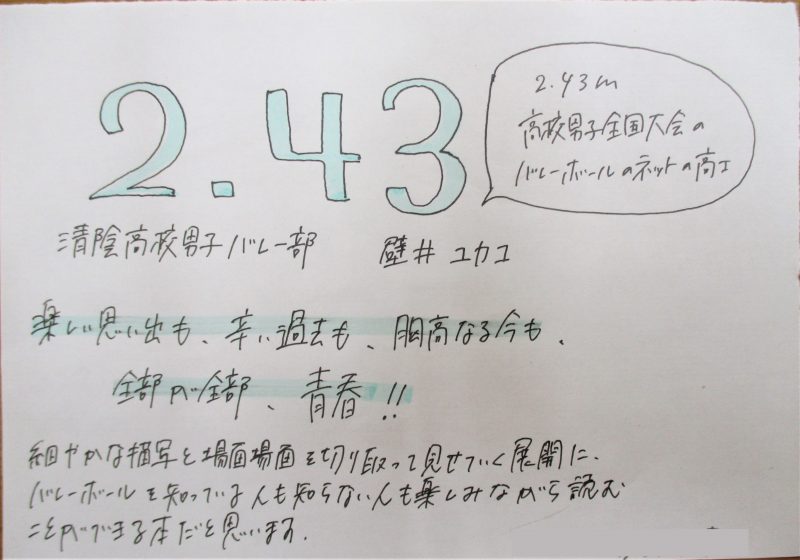 2.43
2.43m
高校男子全国大会の
バレーボールのネットの高さ
清陰高校男子バレー部 壁井ユカコ
楽しい思い出も、辛い過去も、胸高なる今も、
全部が全部、青春!!
細やかな描写と場面場面を切り取って見せていく展開に、
バレーボールを知っている人も知らない人も楽しみながら読む
ことができる本だと思います.